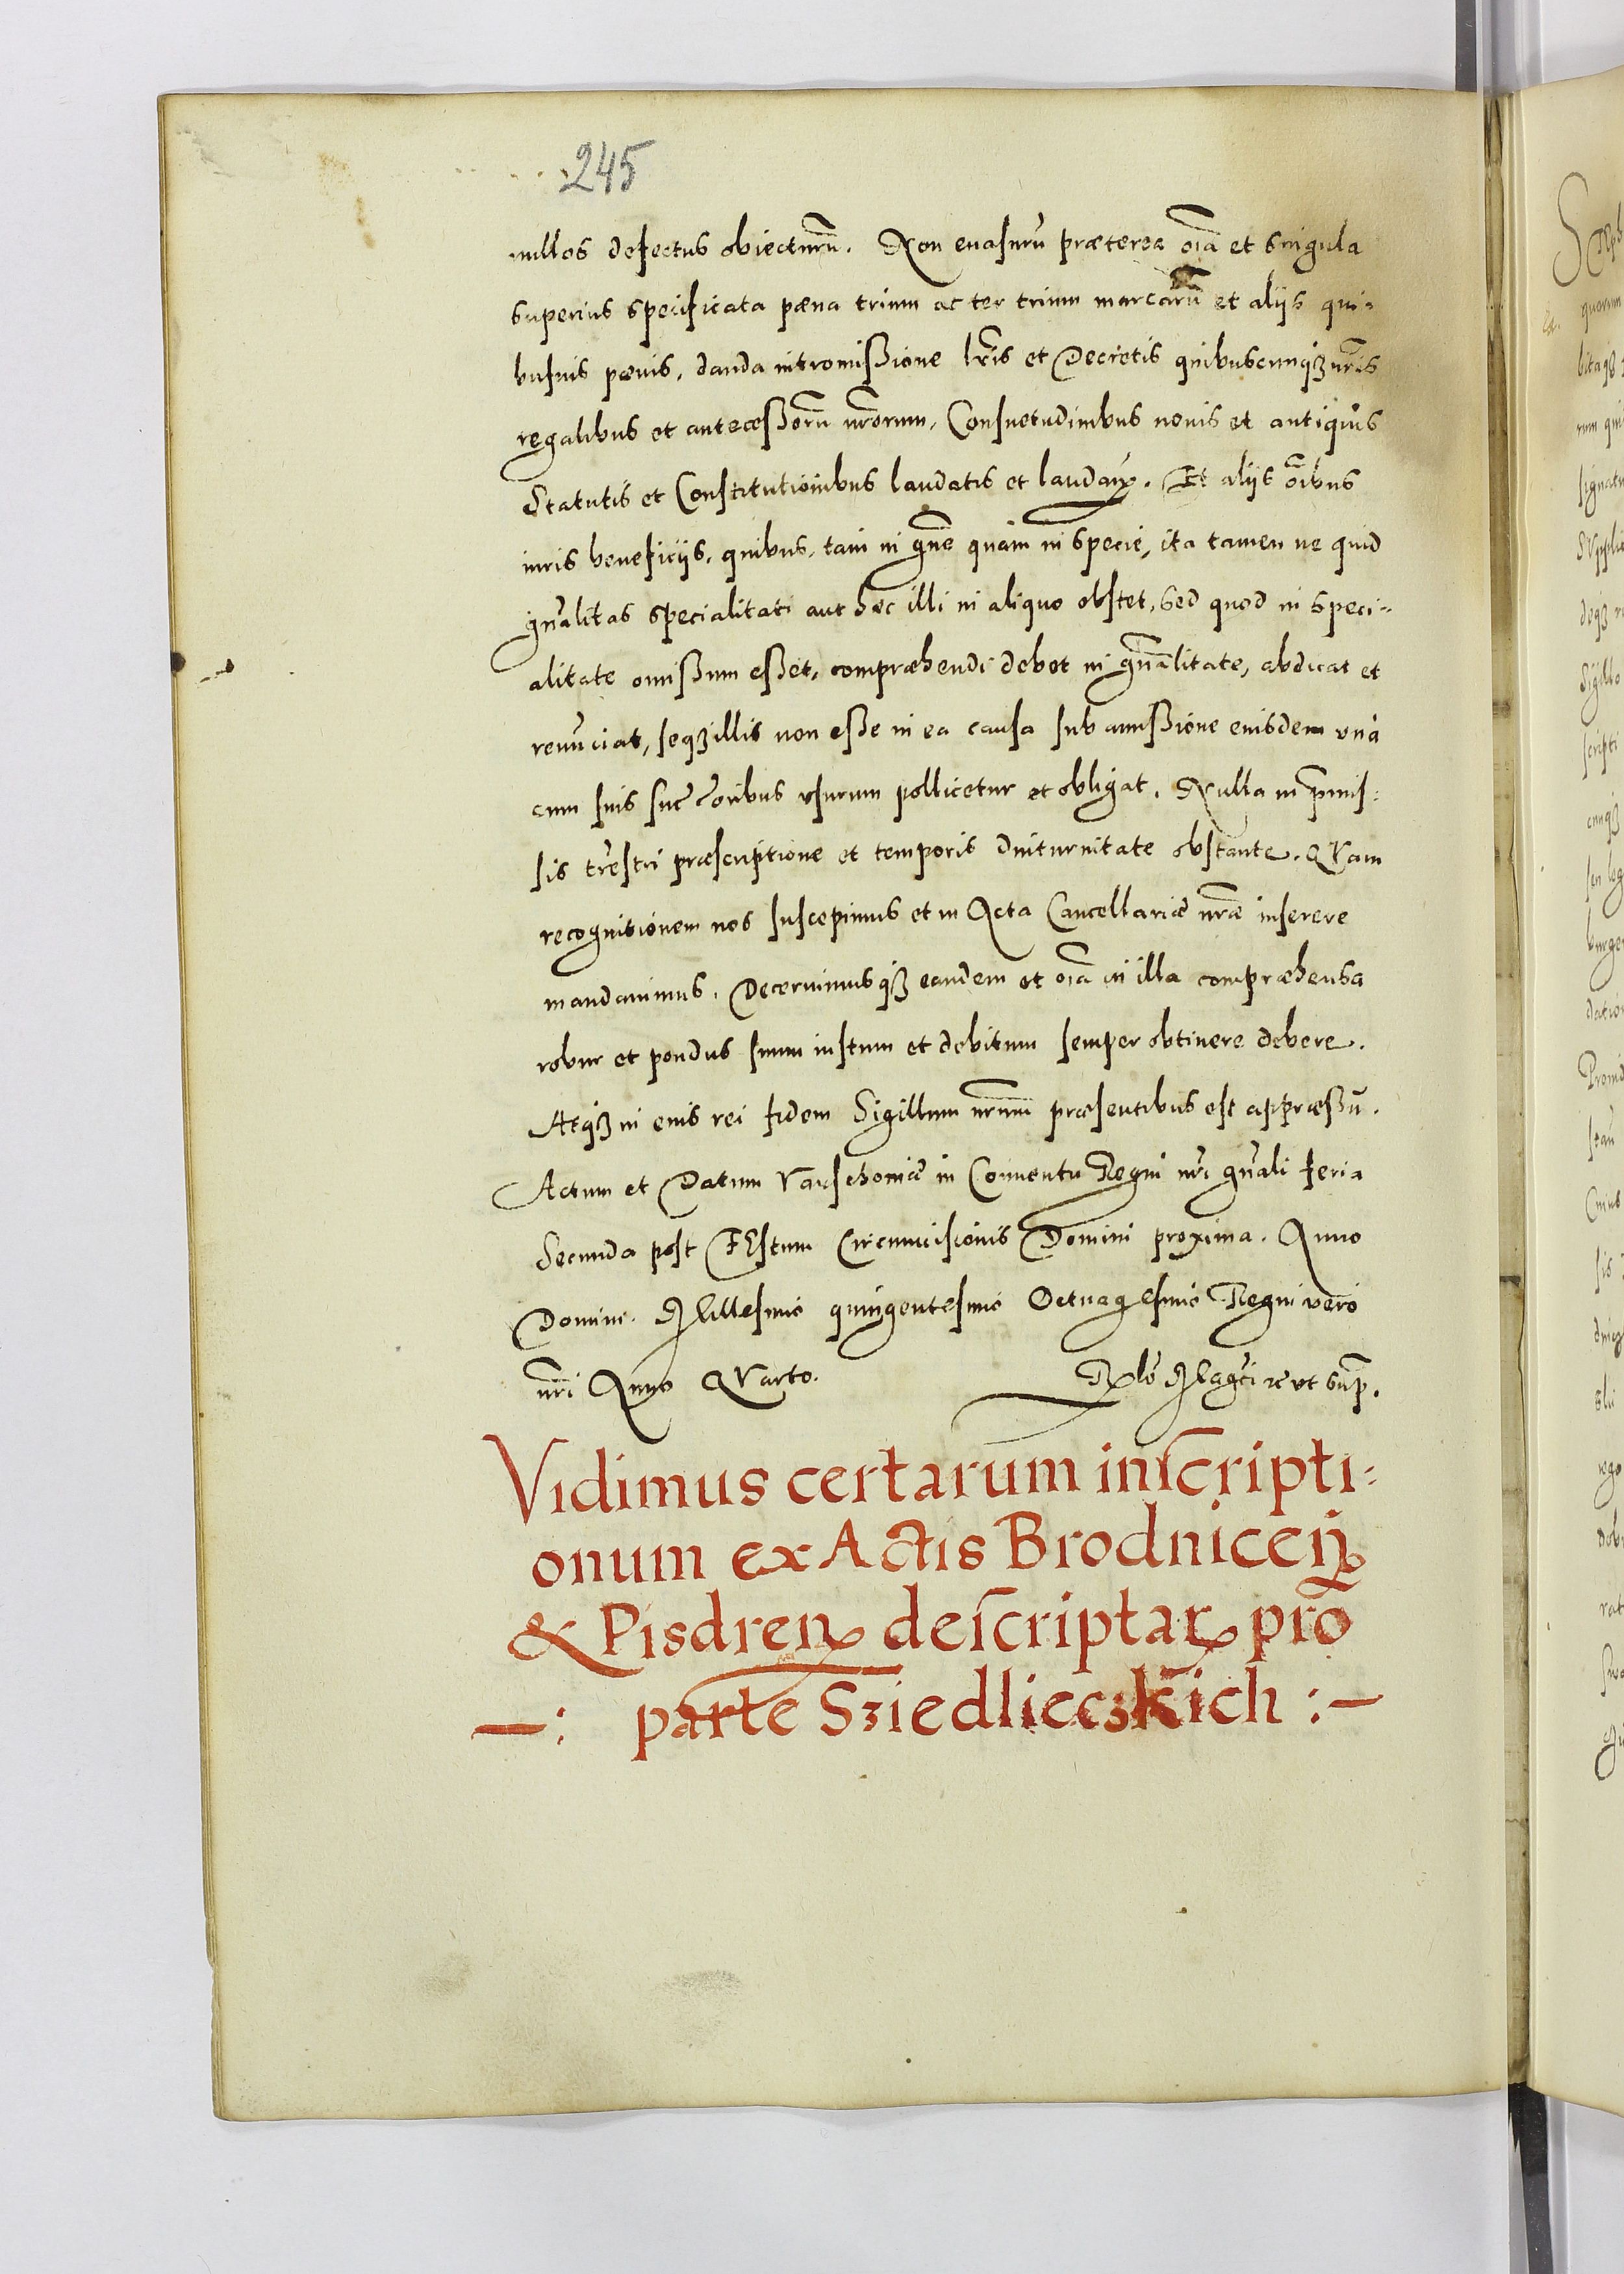 245
nullos defectus obiecturū. Non euasurū præterea oīa et singula
superius specificata pæna trium ac ter trium marcarū et alijs qui-
busuis pænis, danda intromißione lr̃is et Decretis quibuscunqꝫ nr̃is
regalibus et anteceßorū nr̃orum, Consuetudinibus nouis et antiquis
Statutis et Constitutioībus laudatis et laudaṅꝝ. Et alijs oībus
iuris beneficijs, quibus, tam in gñe quam in specie, ita tamen ne quid
gñalitas specialitati aut hæc illi in aliquo obstet, sed quod in speci-
alitate omißum eßet, compræhendi debet in gñalitate, abdicat et
renūciat, seqꝫ illis non eße in ea causa sub amißione eiusdem vna
cum suis succ̃oribus vsurum pollicetur et obligat. Nulla in p̄mis-
sis tr̃estri præscriptione et temporis diuturnitate obstante. QVam
recognitionem nos suscepimus et in Acta Cancellariæ nr̃æ inserere
mandauimus. Decernimusqꝫ eandem et oīa in illa compræhensa
robur et pondus suum iustum et debitum semper obtinere debere.
Atqꝫ in eius rei fidem Sigillum nr̃um præsentibus est appræßū.
Actum et Datum Varschouiæ in Conuentu Regni nr̃i gñali feria
Secunda post FEstum Circumcisionis Domini proxima. Anno
Domini Millesimo quingentesimo Octuagesimo Regni vero
nr̃i Anno QVarto.
Rlõ Mag̃ci ꝛc vt sup̄.
Vidimus certarum inscripti-
onum ex Actis Brodniceñ
& Pisdreñ descriptaꝝ pro
—: parte Sziedlieczkich :—